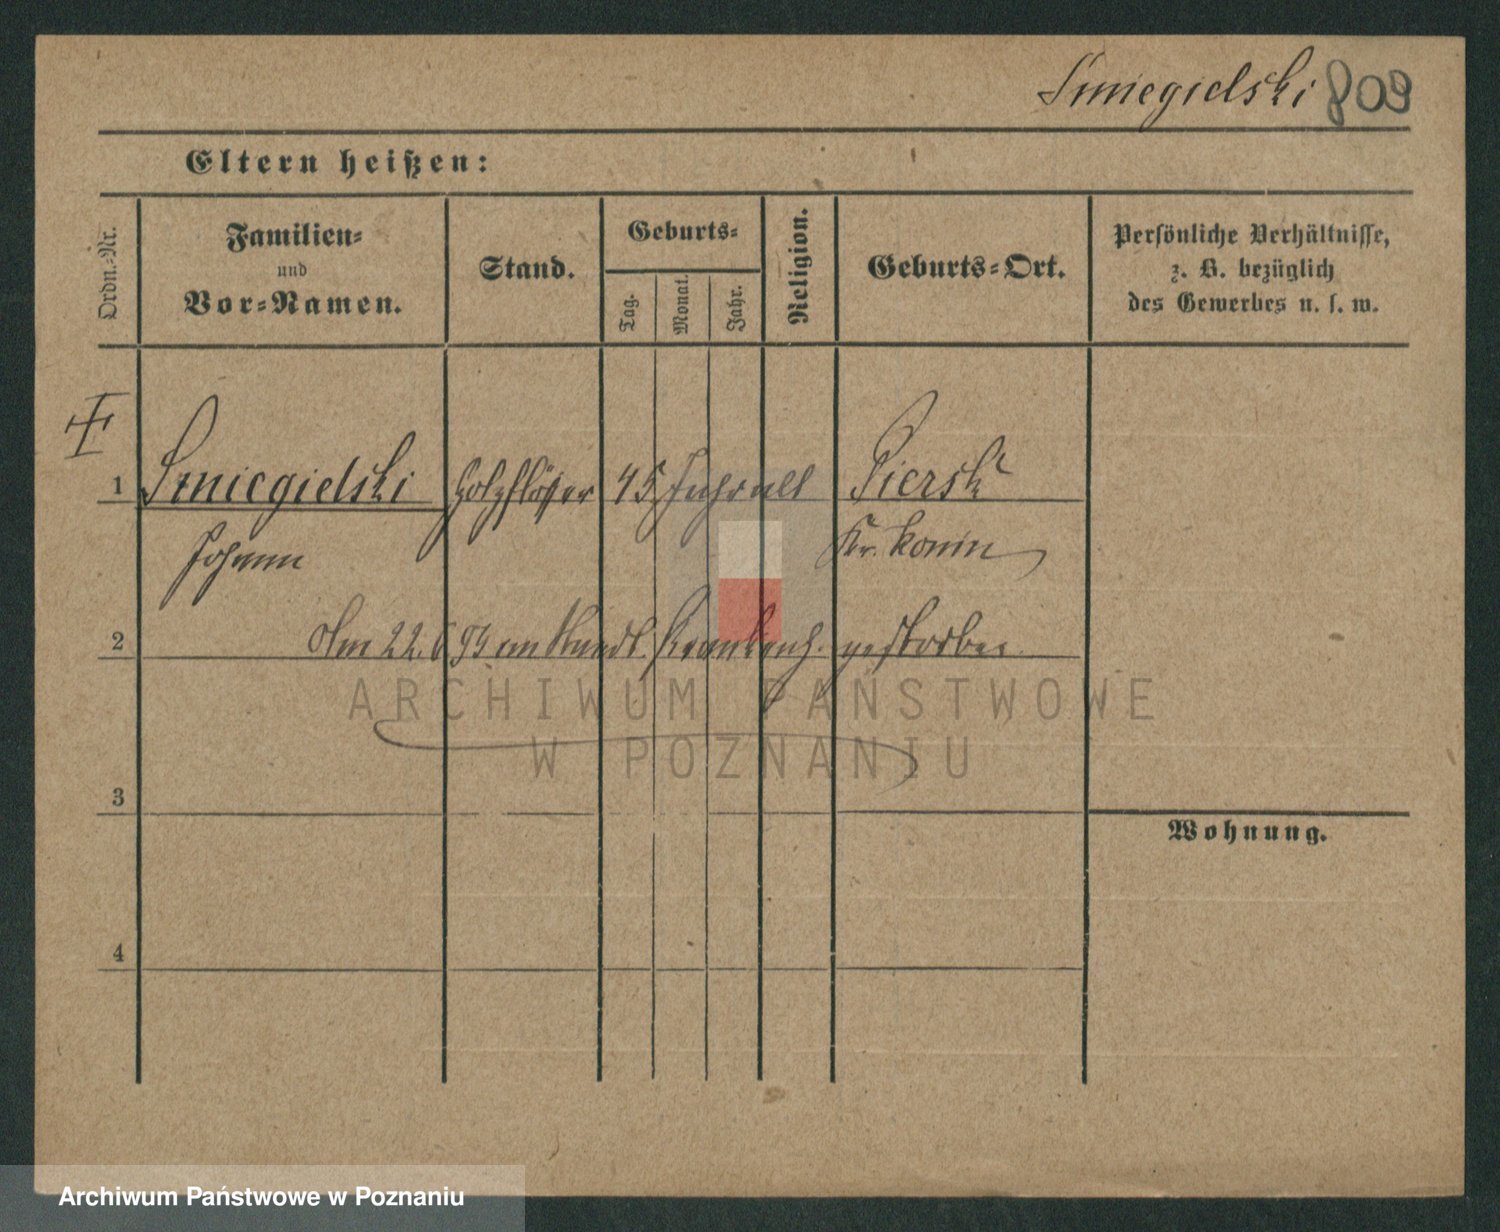 Smiegielski 809
Eltern heißen:
Ordn.-Nr.
Familien-
und
Vor-Namen.
Stand.
Geburts-
Tag.
Monat.
Jahr.
Religion.
Geburts-Ort.
Persönliche Verhältnisse,
z. B. bezüglich
des Gewerbes u. s. w.
1 Smiegielski Holzflößer 45 Jahr alt Piersk
Johann Kr. Konin
2 Am 22. 6 94 im Stadt. Krankenh. gestorben
ARCHIWUM PAŃSTWOWE
W POZNANIU
3
Wohnung.
4
Archiwum Państwowe w Poznaniu